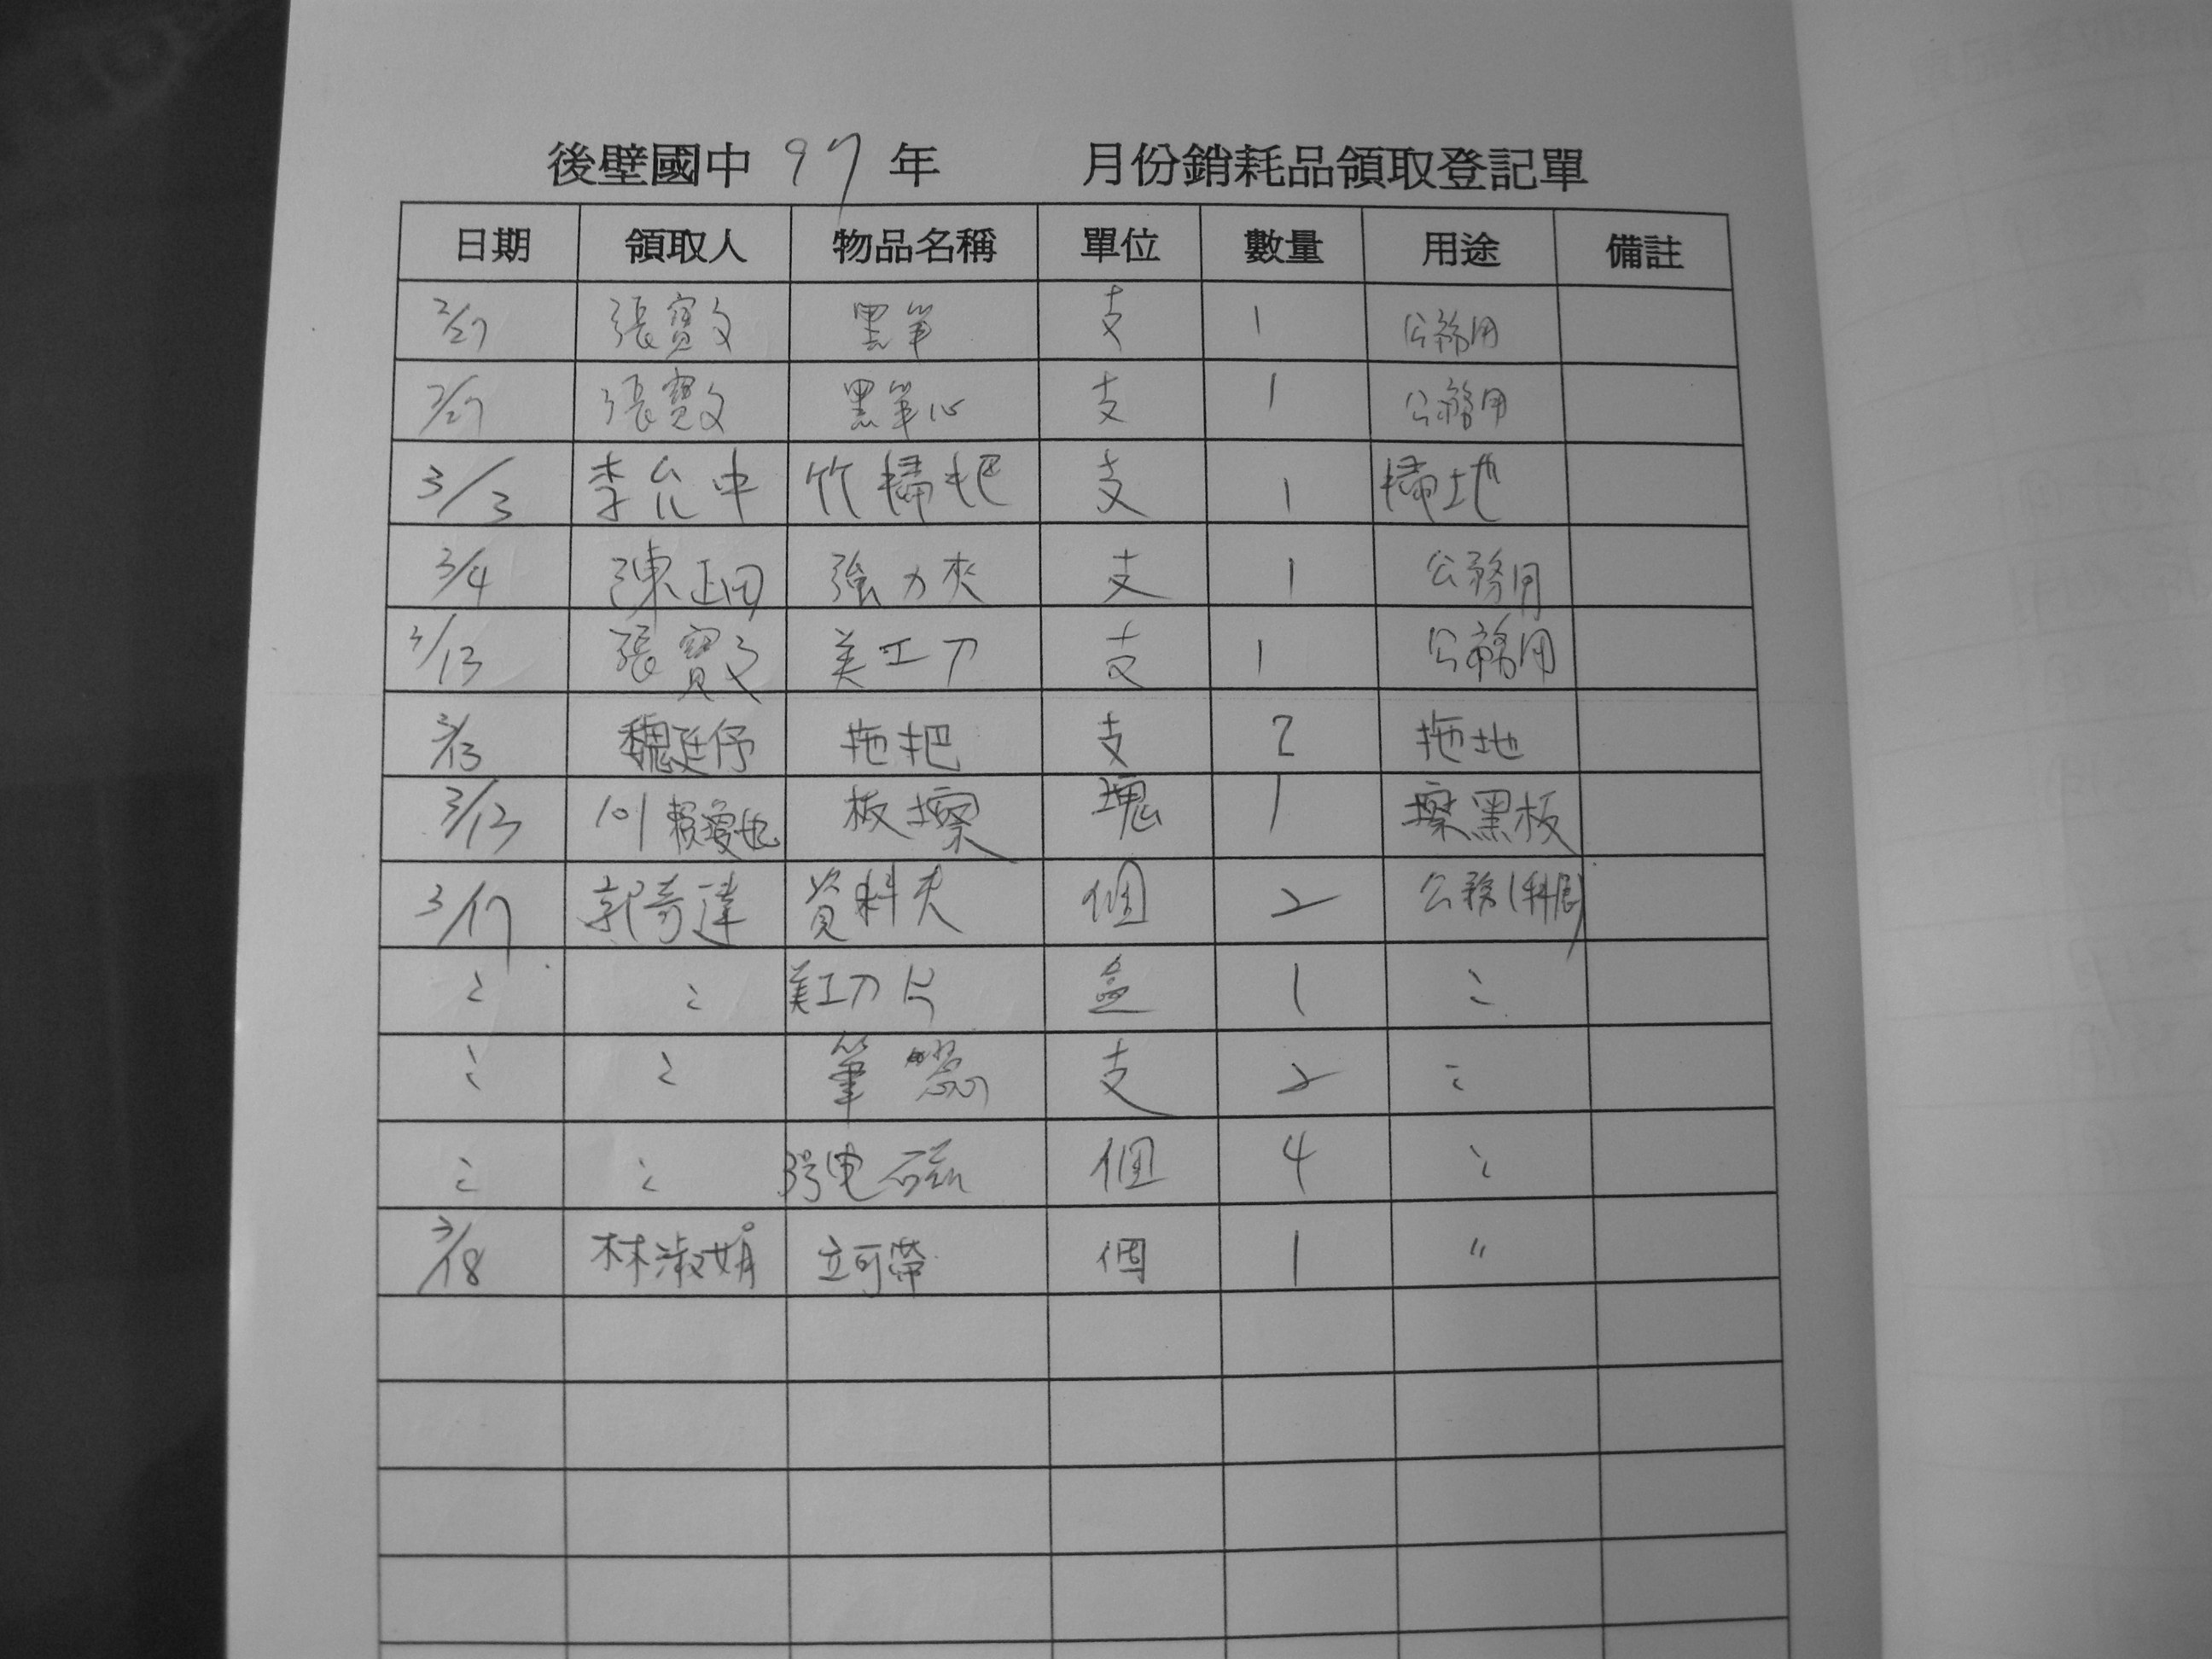 後壁國中 97 年 月份銷耗品領取登記單
日期 領取人 物品名稱 單位 數量 用途 備註
2/27 張寶文 黑筆 支 1 公務用
2/27 張寶文 黑筆心 支 1 公務用
3/3 李允中 竹掃把 支 1 掃地
3/4 陳正田 強力夾 支 1 公務用
3/13 張寶文 美工刀 支 1 公務用
3/13 魏廷伃 拖把 支 2 拖地
3/13 101 賴 板擦 塊 1 擦黑板
3/17 郭奇達 資料夾 個 2 公務(科展)
〃 〃 美工刀片 盒 1 〃
〃 〃 筆蕊 支 2 〃
〃 〃 個 4 〃
3/18 林淑娟 立可帶 個 1 〃